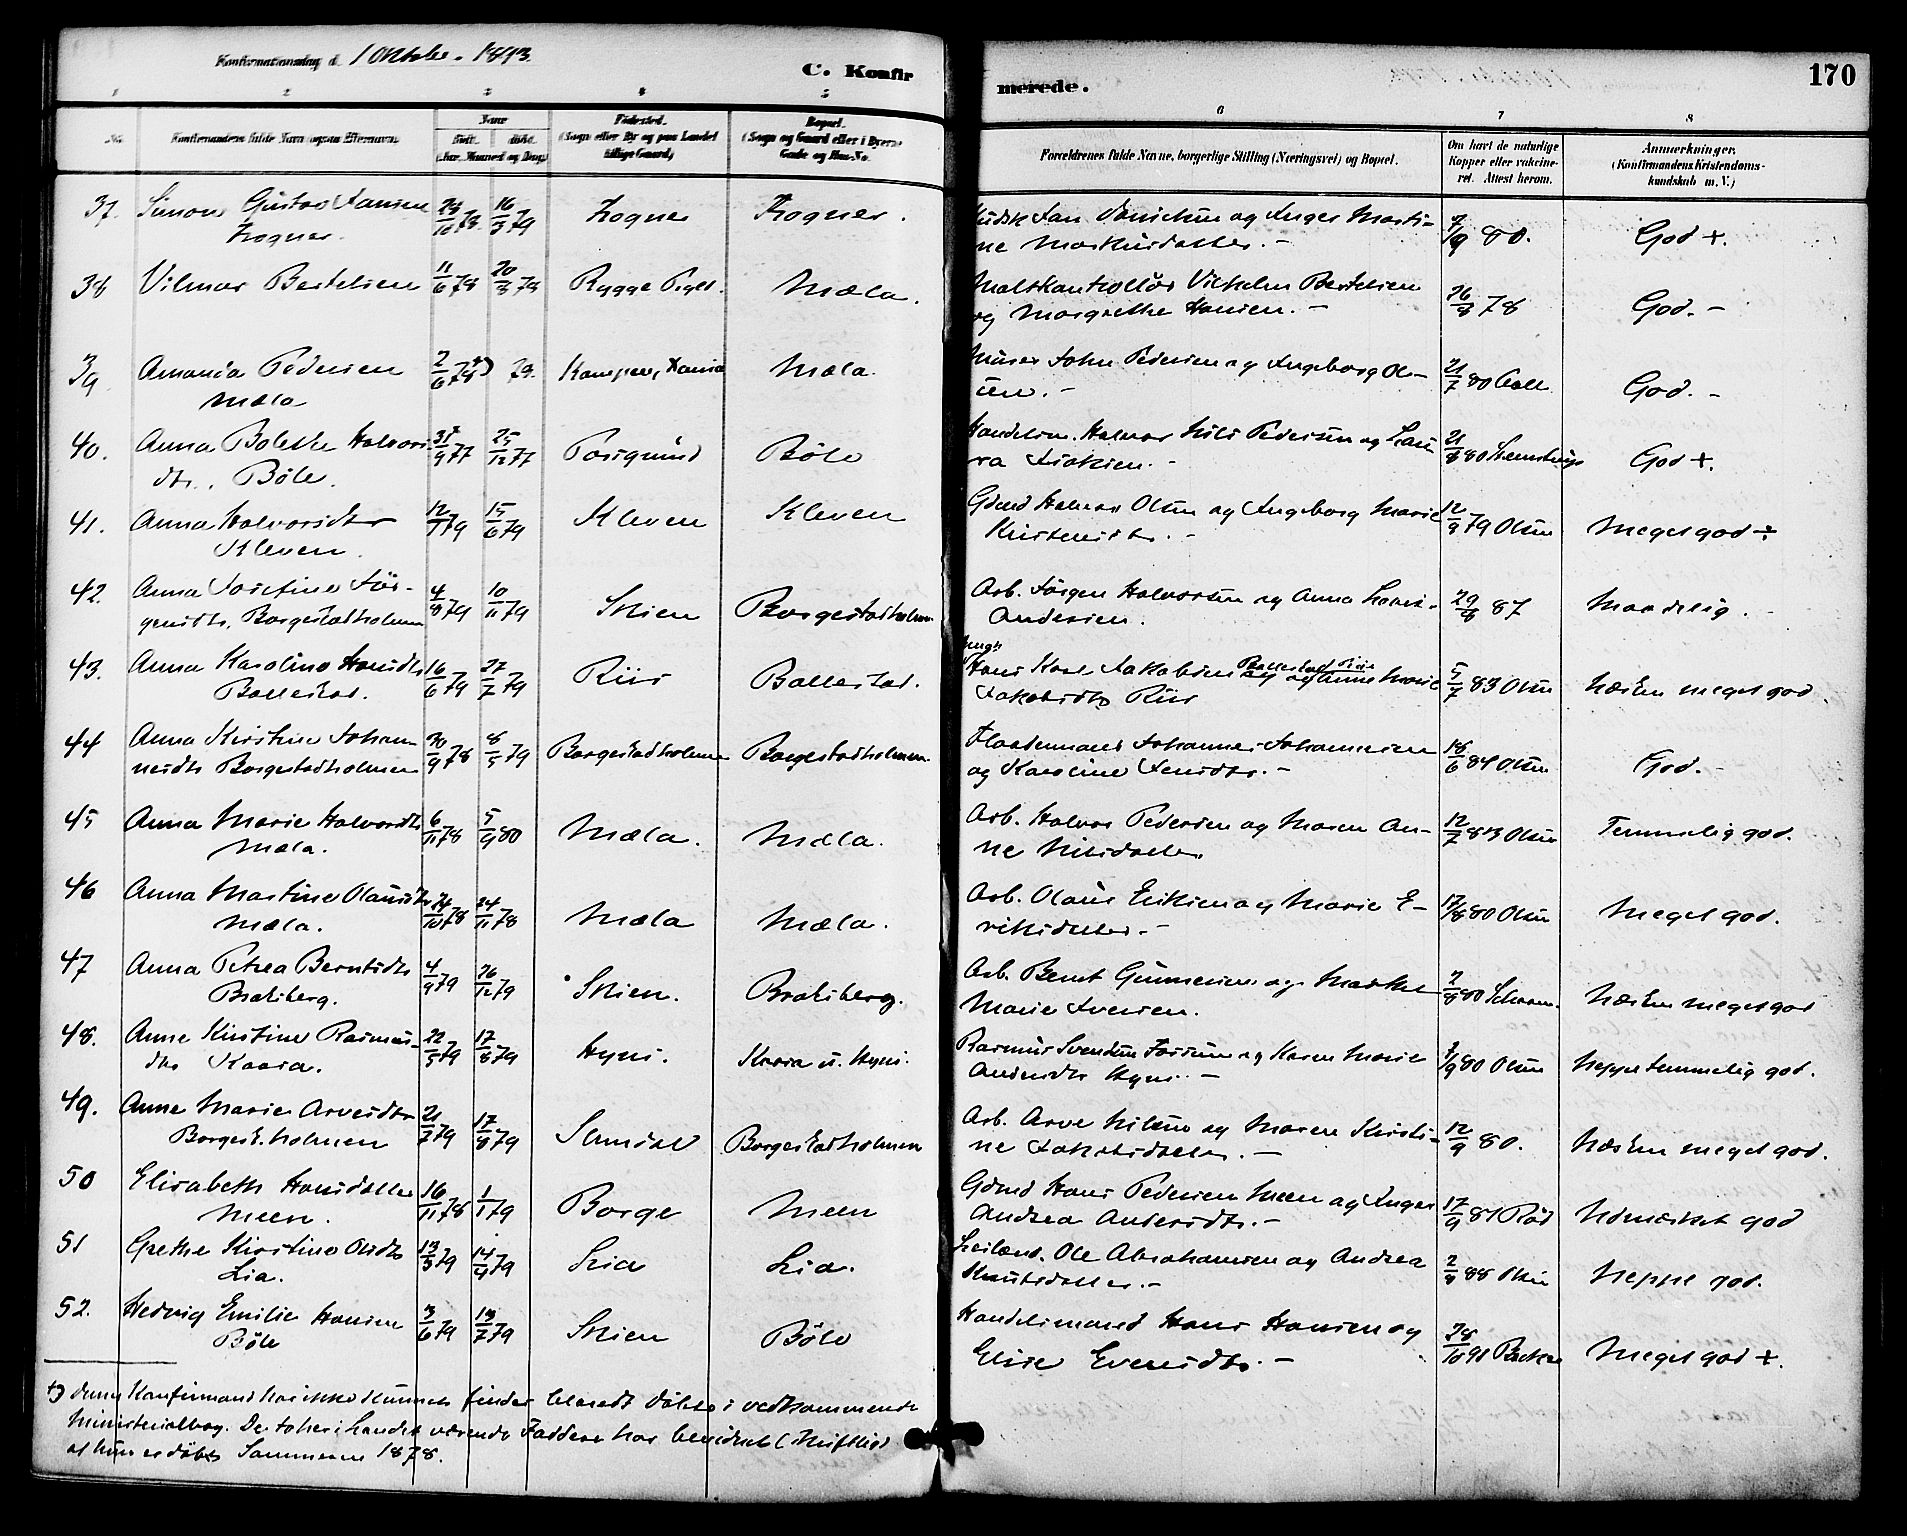 Konfirmationsdag d. 1 Oktobr. 1893.
C. Konfir
merede.
170
1 2 3 4 5 6 7 8
No. Konfirmandens fulde Navn ogsaa Efternavn.
Naar
født. døbt.
(Aar, Maaned og Dag.)
Fødested.
(Sogn eller By og paa Landet
tillige Gaard)
Bopæl.
(Sogn og Gaard eller i Byers
Gade og Hus-No.
Forældrenes fulde Navne, borgerlige Stilling (Næringsvei) og Bopæl.
Om havt de naturlige
Kopper eller vakcine-
ret. Attest herom.
Anmerkninger.
(Konfirmandens Kristendoms-
kundskab m. V.)
37. Simon Gustav Jansen 16/3 79 7/9 80. God +.
38 Vilmar Bertelsen 11/6 78 20/3 79 Rygge Prgd. Mæla. Vilhelm Bertelsen 26/8 78 God. -
og Margrethe Hansen. -
39 Amanda Pedersen 2/6 78 *) 79. Mæla. John Pedersen og Ingeborg Ol- 21/7 80 God. -
Mæla sen. -
40. Anna Bolethe Halvors- 31/9 77 25/12 77 Porsgrund Böle Handelsm. Halvor Nils Pedersen og Lau- 21/8 80 God +.
dtr., Böle. ra Isaksen. -
41. Anna Halvorsdtr 12/1 79 15/6 79 Kleven Kleven Gdmd Halvor Olsen og Ingeborg Marie 12/9 79 Olsen Meget god ÷
Kleven. Kristensdtr. -
42. Anna Josefine Jör- 4/8 79 10/11 79 Skien Borgestadholmen Arb. Jørgen Halvorsen og Anna Lovise 29/8 87 Maadelig. -
gensdtr. Borgestadholmen Andersen.
43. Anna Karoline Hansdtr 16/6 79 27/7 79 Riis Ballestad. Hans Karl Jakobsen Ballestad og Anne Marie 5/7 83 Olsen Næsten meget god
Ballestad. Jakobsdtr Riis
44 Anna Kirstine Johan- 30/9 78 8/5 79 Borgestadholmen Borgestadholmen. Flaademand Johannes Johannesen 18/6 84 Olsen God. -
nesdtr Borgestadholmen og Karoline Jensdtr. -
45 Anna Marie Halvorsdtr 6/11 78 5/9 80 Mæla. Mæla. Arb. Halvor Pedersen og Maren An- 12/7 83 Olsen Temmelig god.
Mæla. ne Nilsdatter
46 Anna Martine Olausdtr 24/10 78 24/11 78 Mæla Mæla. Arb. Olaus Eriksen og Marie E- 17/8 80 Olsen Meget god.
Mæla. riksdatter. -
47 Anna Petrea Berntsdtr 4/9 79 26/12 79 Skien. Bratsberg. Arb. Bernt Gunnersen og Marthe 2/8 80 Næsten meget god
Bratsberg. Marie Iversen.
48. Anne Kirstine Rasmus- 22/5 79 17/8 79 Hyni. Kaasa u. Hyni. Rasmus Svendsen Fossum og Karen Marie 80 Olsen Neppe temmelig god.
dtr Kaasa. Andersdtr Hyni. -
49. Anne Marie Arvesdtr 21/2 79 17/8 79 Borgestadholmen Arb. Arve Nilsen og Maren Kristi- 12/9 80. Næsten meget god.
Borgest.holmen ne Jakobsdatter. -
50 Elisabeth Hansdatter 16/11 78 1/1 79 Borge Meen Gdmd Hans Pedersen Meen og Inger 17/9 81 Röd Udmærket god
Meen. Andrea Andersdtr. -
51 Grethe Kirstine Olsdtr 13/3 79 14/4 79 Lia Lia. Leilænd. Ole Abrahamsen og Andrea 88 Olsen Neppe god.
Lia. Knutsdatter. -
52. Hedvig Emilie Hansen 3/6 79 13/7 79 Skien Böle Handelsmand Hans Hansen og 28/10 91 Meget god +.
Böle Elise Evensdtr. -
*) Denne Konfirmand har ikke kunnet findes blandt døbte i vedkommende
Ministerialbog. De to her i Landet værende Faddere har bevidnet (skriftlig)
at hun er døbt Sommeren 1878.